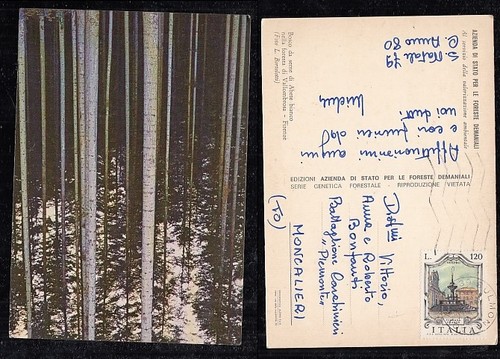 AZIENDA DI STATO PER LE FORESTE DEMANIALI
Al servizio della valorizzazione ambientale
Bosco da seme di Abete bianco
nella foresta di Vallombrosa - Firenze
S. Natale 79
C. Anno 80
Affettuosissimi auguri
a voi tutti
EDIZIONI AZIENDA DI STATO PER LE FORESTE DEMANIALI
SERIE GENETICA FORESTALE - RIPRODUZIONE VIETATA
Vittorio,
Anna e Roberto
Bonfanti
Battaglione Carabinieri
"Piemonte"
MONCALIERI
(TO)
L. 120
ITALIA